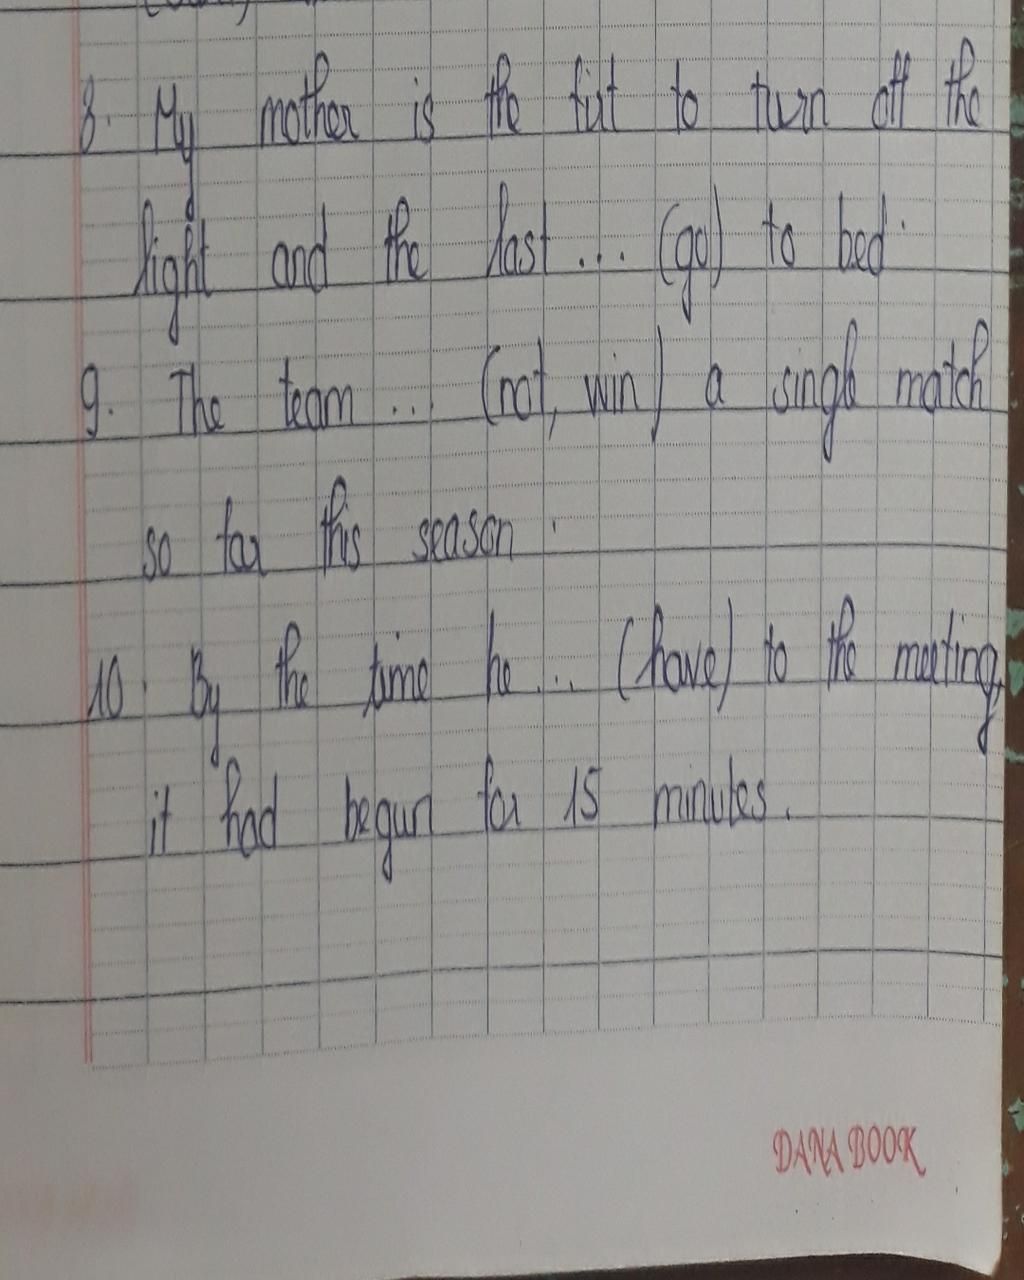 8. My mother is the fist to turn off the
light and the last ... (go) to bed.
9. The team ... (not, win) a single match
so far this season.
10. By the time he ... (have) to the meeting,
it had begun for 15 minutes.
DANA BOOK